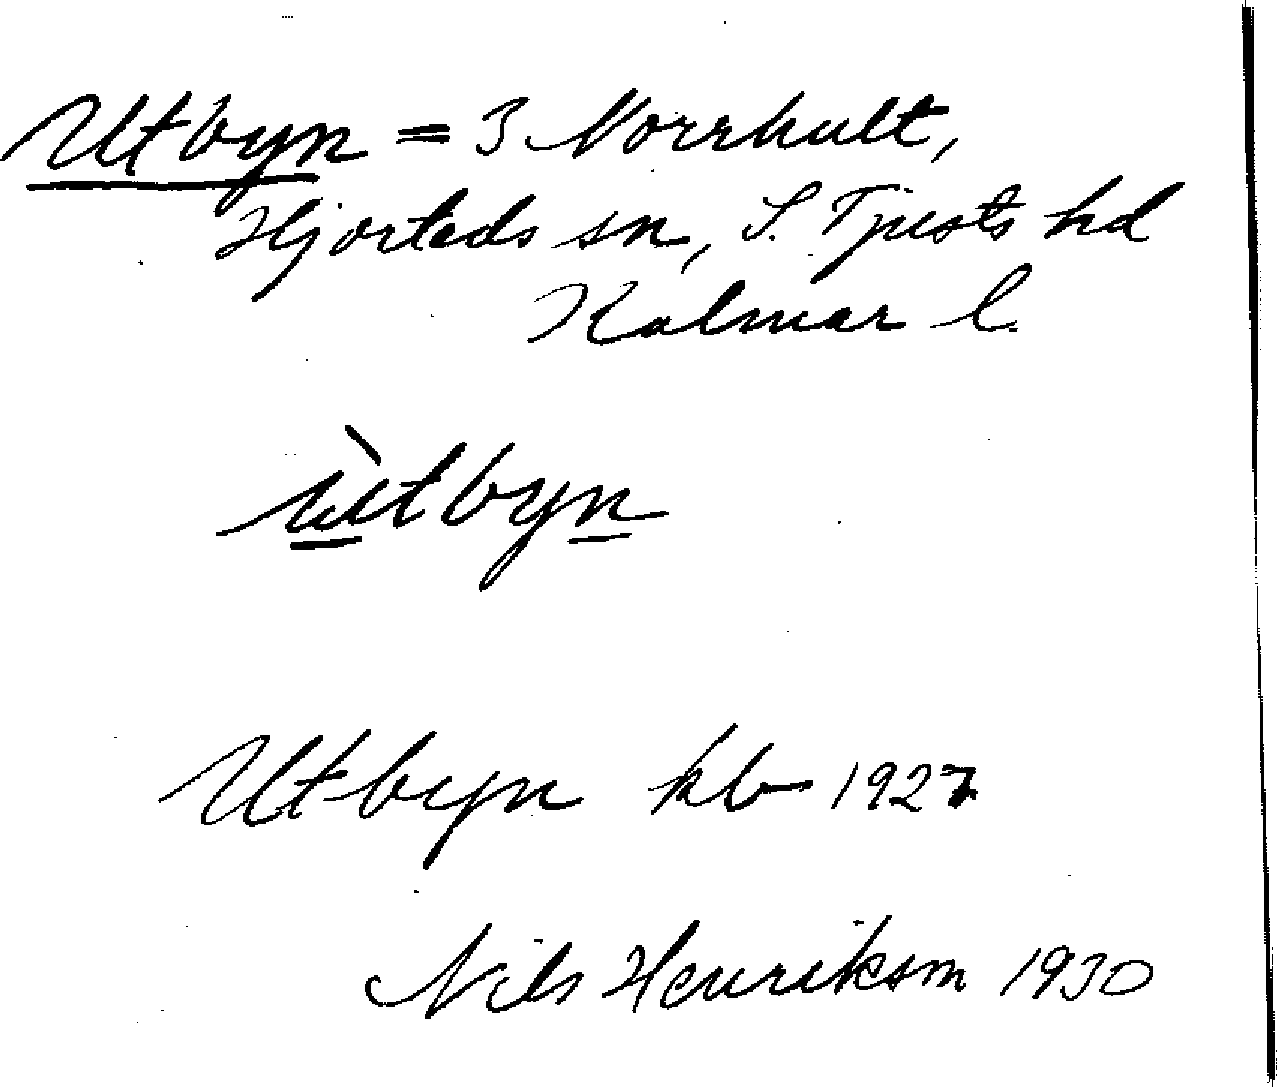 Utbyn = 3 Norrhult,
Hjorteds sn, S. Tjusts hd
Kalmar l.
ùtbyn
Utbyn kb 1927
Nils Henriksm 1930